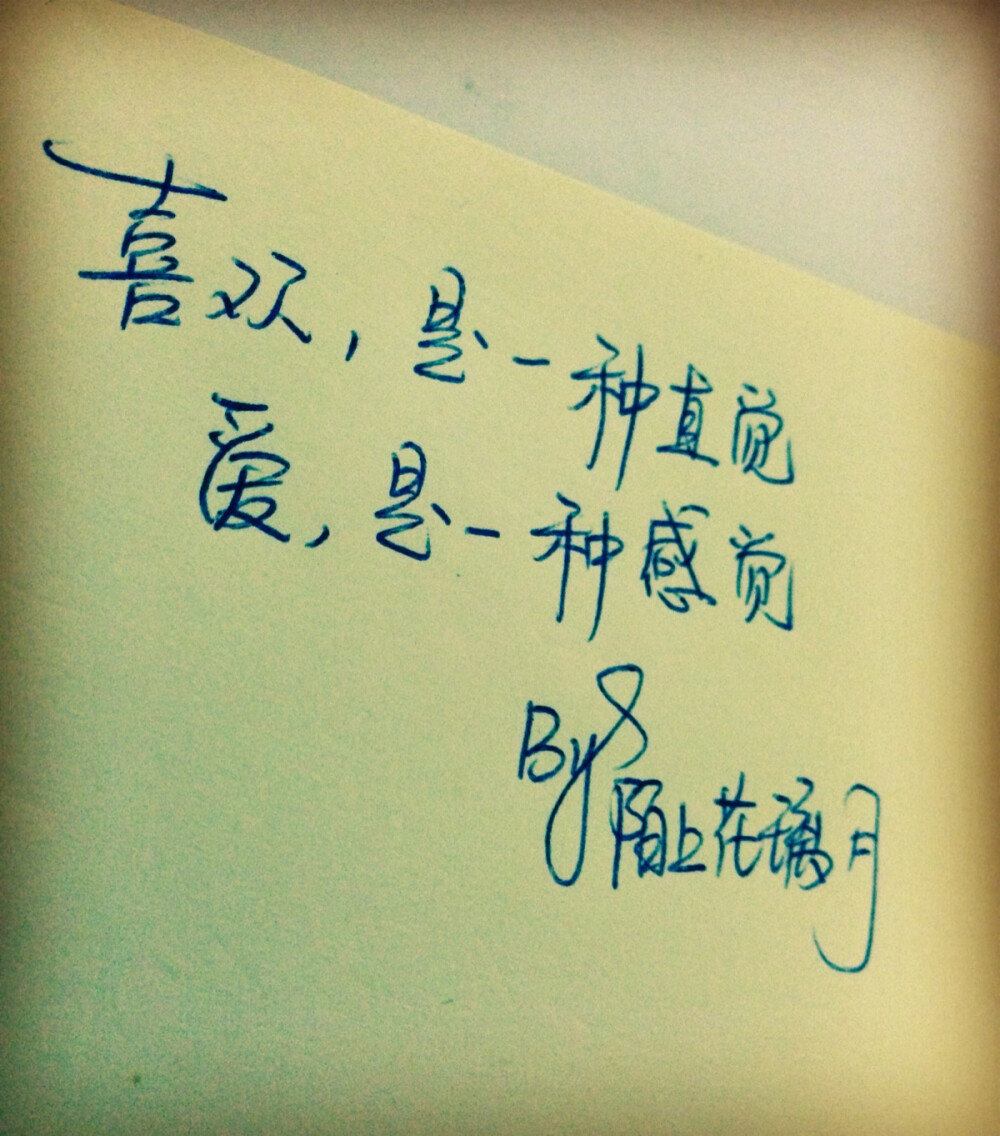 喜欢，是一种直觉
爱，是一种感觉
By
陌上花璃月